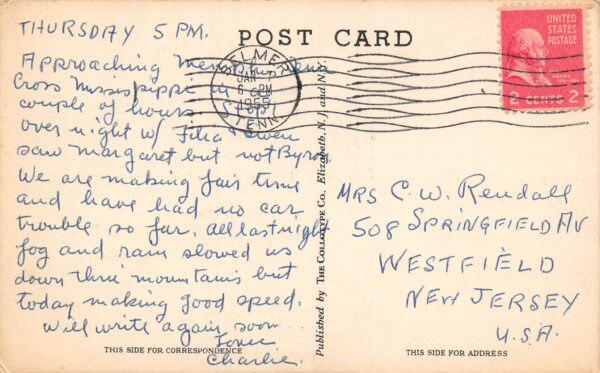 THURSDAY 5 PM.
Approaching Memphis Tenn
Cross Mississippi in a
couple of hours. Stop
over night w/ &
saw Margaret but not Byron.
We are making fair time
and have had no car
trouble so far. All last night
fog and rain slowed us
down thru mountains but
today making good speed.
Will write again soon
Love
Charlie.
THIS SIDE FOR CORRESPONDENCE
POST CARD
SELMER
JAN
6 PM
1955
TENN.
Published by THE COLLOTYPE CO., Elizabeth, N. J. and N.Y.
UNITED
STATES
POSTAGE
2 CENTS 2
MRS C. W. Rendall
508 SPRINGFIELD AV
WESTFIELD
NEW JERSEY
U.S.A.
THIS SIDE FOR ADDRESS